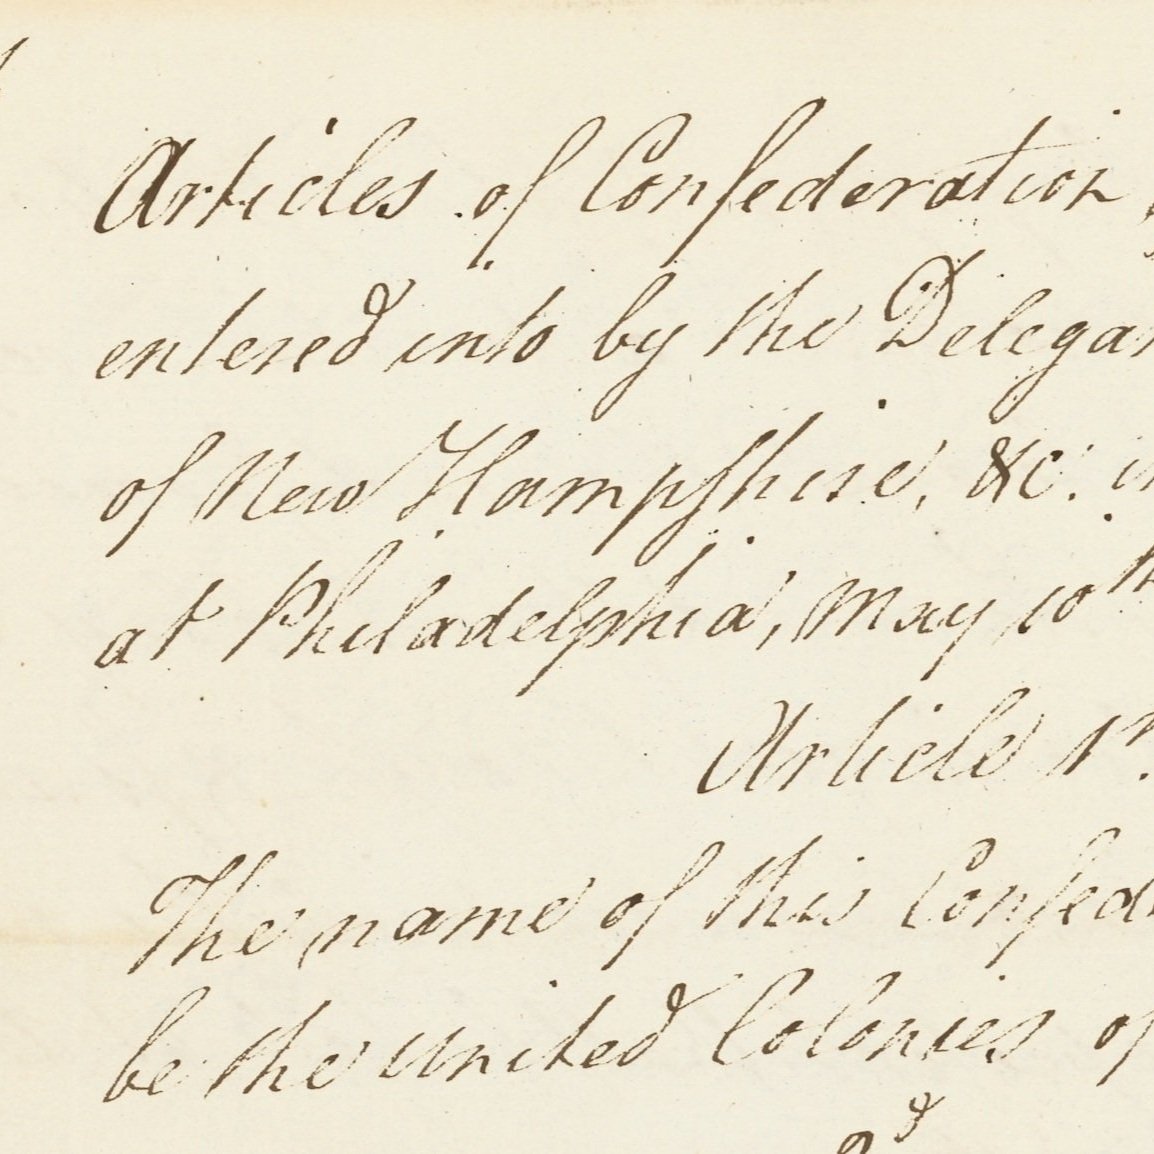 Articles of Confederation,
entered into by the Delega
of New Hampshire, &c. in
at Philadelphia, May 10th
Article 1st.
The name of this Confed
be the united Colonies of
2d